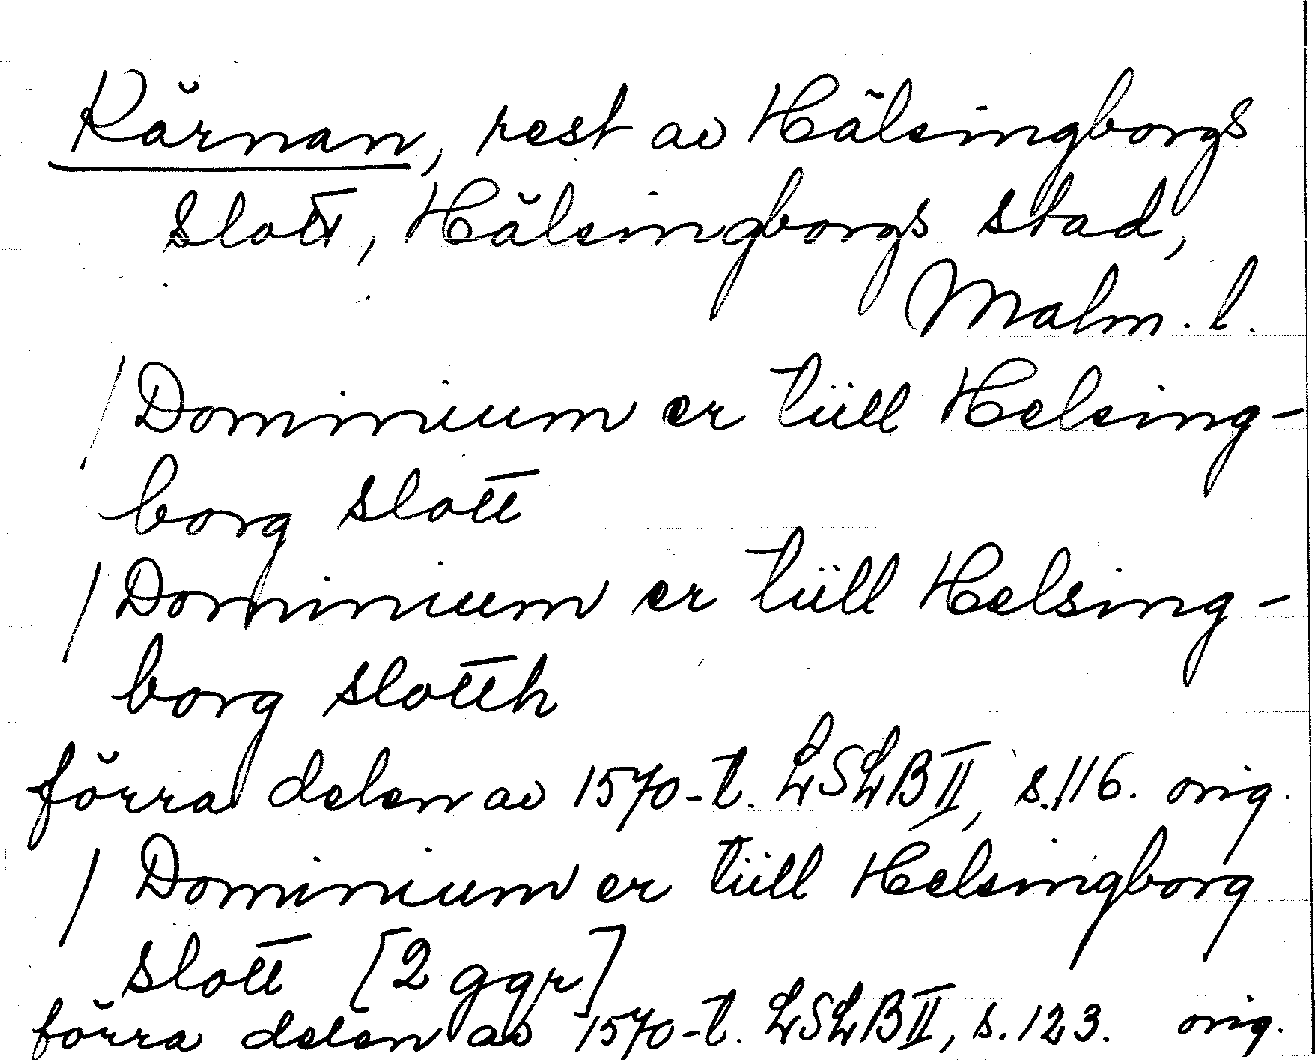 Kärnan, rest av Hälsingborgs
slott, Hälsingborgs stad,
Malm. l.
/ Dominium er tüll Helsing-
borg slott
/ Dominium er tüll Helsing-
borg slotth
förra delen av 1570-t. LSLB II, s. 116. orig.
/ Dominium er tüll Helsingborg
slott [2 ggr]
förra delen av 1570-t. LSLB II, s. 123. orig.